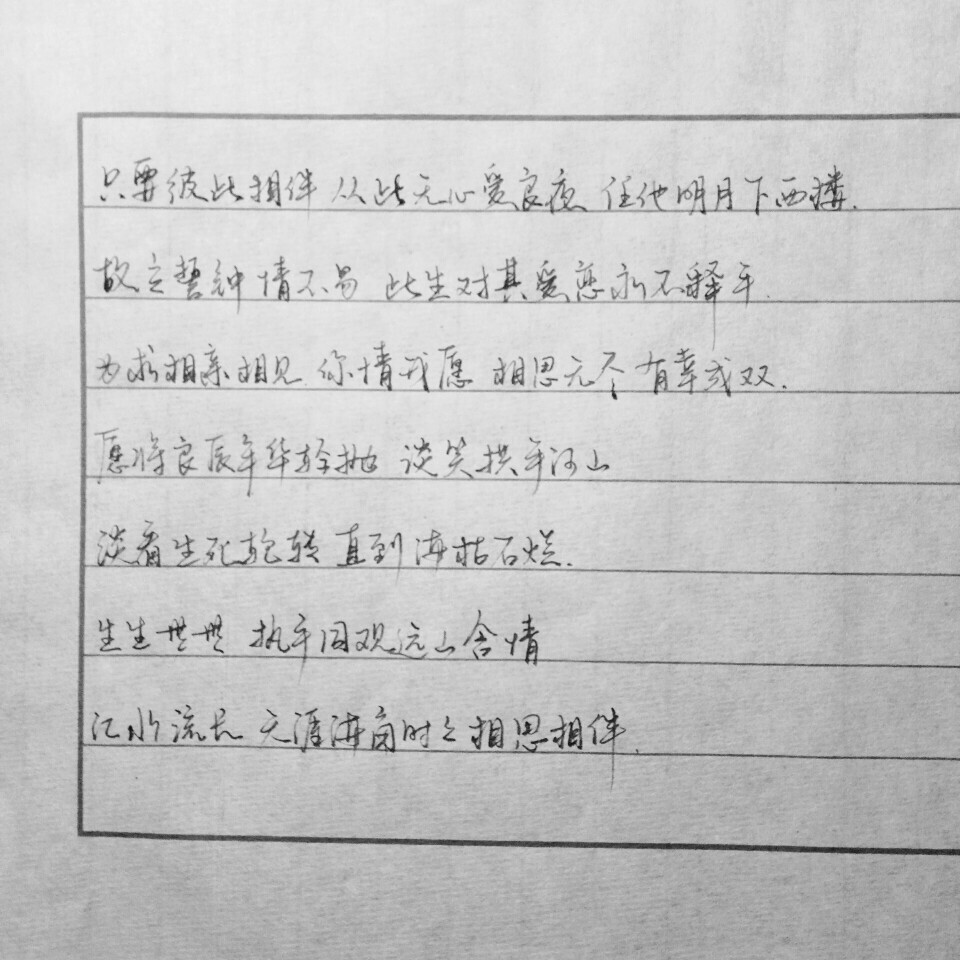 只要彼此相伴 从此无心爱良夜 任他明月下西楼.
故立誓钟情不易 此生对其爱恋永不释手.
为求相亲相见 你情我愿 相思无尽 有幸成双.
愿将良辰年华轻抛 谈笑拱手河山
淡看生死轮转 直到海枯石烂.
生生世世 执手同观远山含情
江水流长 天涯海角时之相思相伴.